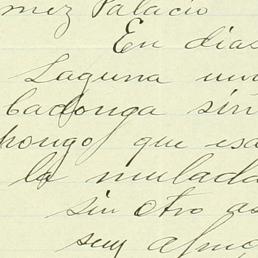 mez Palacio
En dias
Laguna
badonga sin
pongo que esa
la mulada
sin otro as